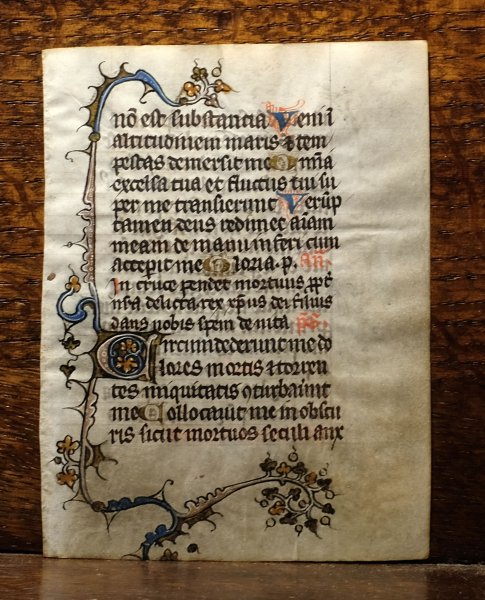 nō est substantia Veni ī
altitudinem maris & tem
pestas demersit me Omīa
excelsa tua et fluctus tui su
per me transierunt Verūp
tamen deus redimet aīam
meam de manu inferi cum
acceperit me Gloria. p. añ.
In cruce pendet mortuus ppt
nr̄a delicta rex xp̄us dei filius
dans nobis spem de vita ps.
Circumdederunt me do
lores mortis & torren
tes iniquitatis 9turbaūt
me Collocavit me in obscu
ris sicut mortuos seculi anx